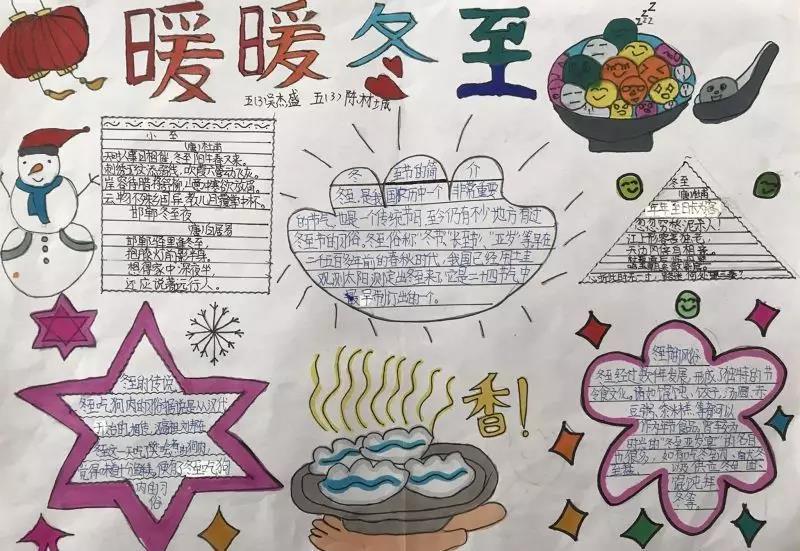 暖暖冬至
五(3)吴杰盛 五(3)陈材城
小至
(唐)杜甫
天时人事日相催,冬至阳生春又来。
刺绣五纹添弱线,吹葭六琯动飞灰。
岸容待腊将舒柳,山意冲寒欲放梅。
云物不殊乡国异,教儿且覆掌中杯。
邯郸冬至夜
(唐)白居易
邯郸驿里逢冬至,
抱膝灯前影伴身。
想得家中深夜半,
还应说着远行人。
冬至节的简介
冬至,是我国农历中一个非常重要
的节气,也是一个传统节日,至今仍有不少地方有过
冬至节的习俗。冬至俗称"冬节""长至节"、"亚岁"等,早在
二千五百多年前的春秋时代,我国已经用土圭
观测太阳测定出冬至来了,它是二十四节气中
最早制订出的一个。
冬至
(唐)杜甫
年年至日长为客,
忽忽穷愁泥杀人!
江上形容吾独老,
冬至的传说
冬至吃狗肉的习俗据说是从汉代
开始的。相传,汉高祖刘邦在
冬至这一天吃了樊哙煮的狗肉,
觉得味道十分鲜美,
冬至吃狗
肉的习
俗
香!
冬至节的风俗
冬至经过数千年发展,形成了独特的节
令食文化。
馄饨、饺子、汤圆、赤
豆粥、黍米糕等都可
作为年节食品。
"冬至亚岁宴"的名目
也很多,如
冬至
馄饨拜
冬等。